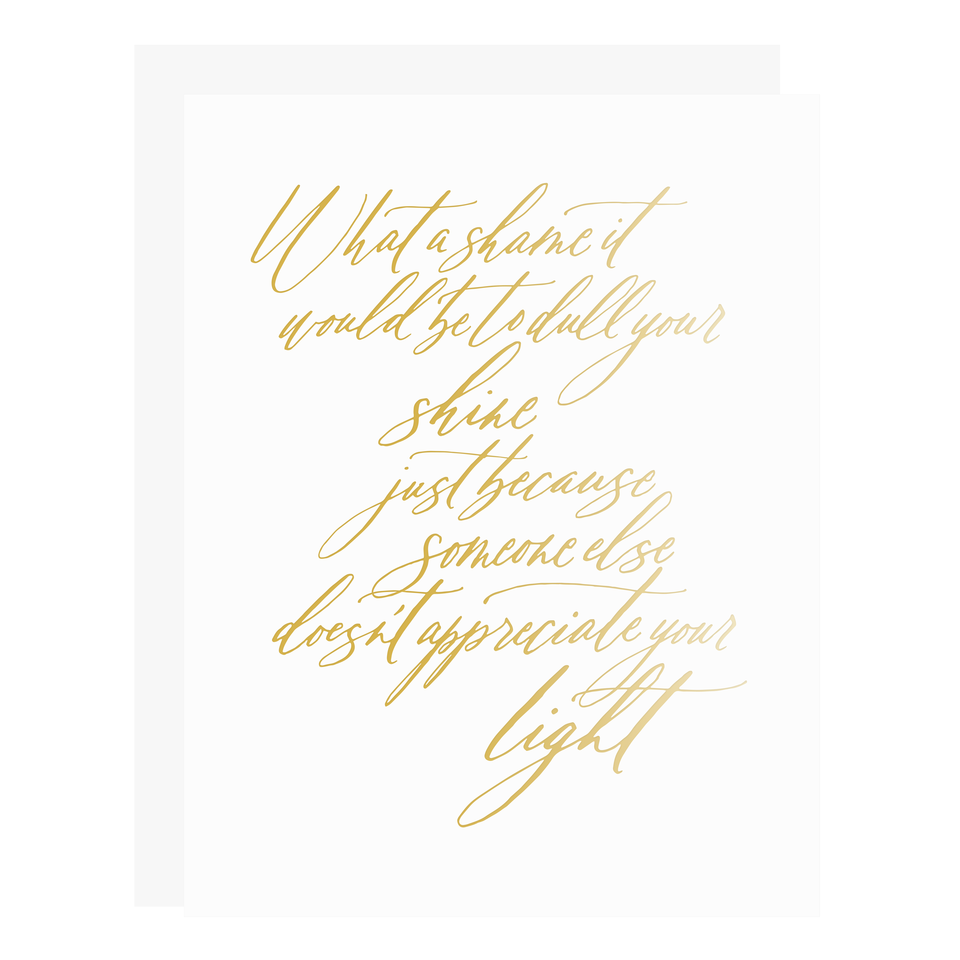 What a shame it
would be to dull your
shine
just because
someone else
doesn't appreciate your
light